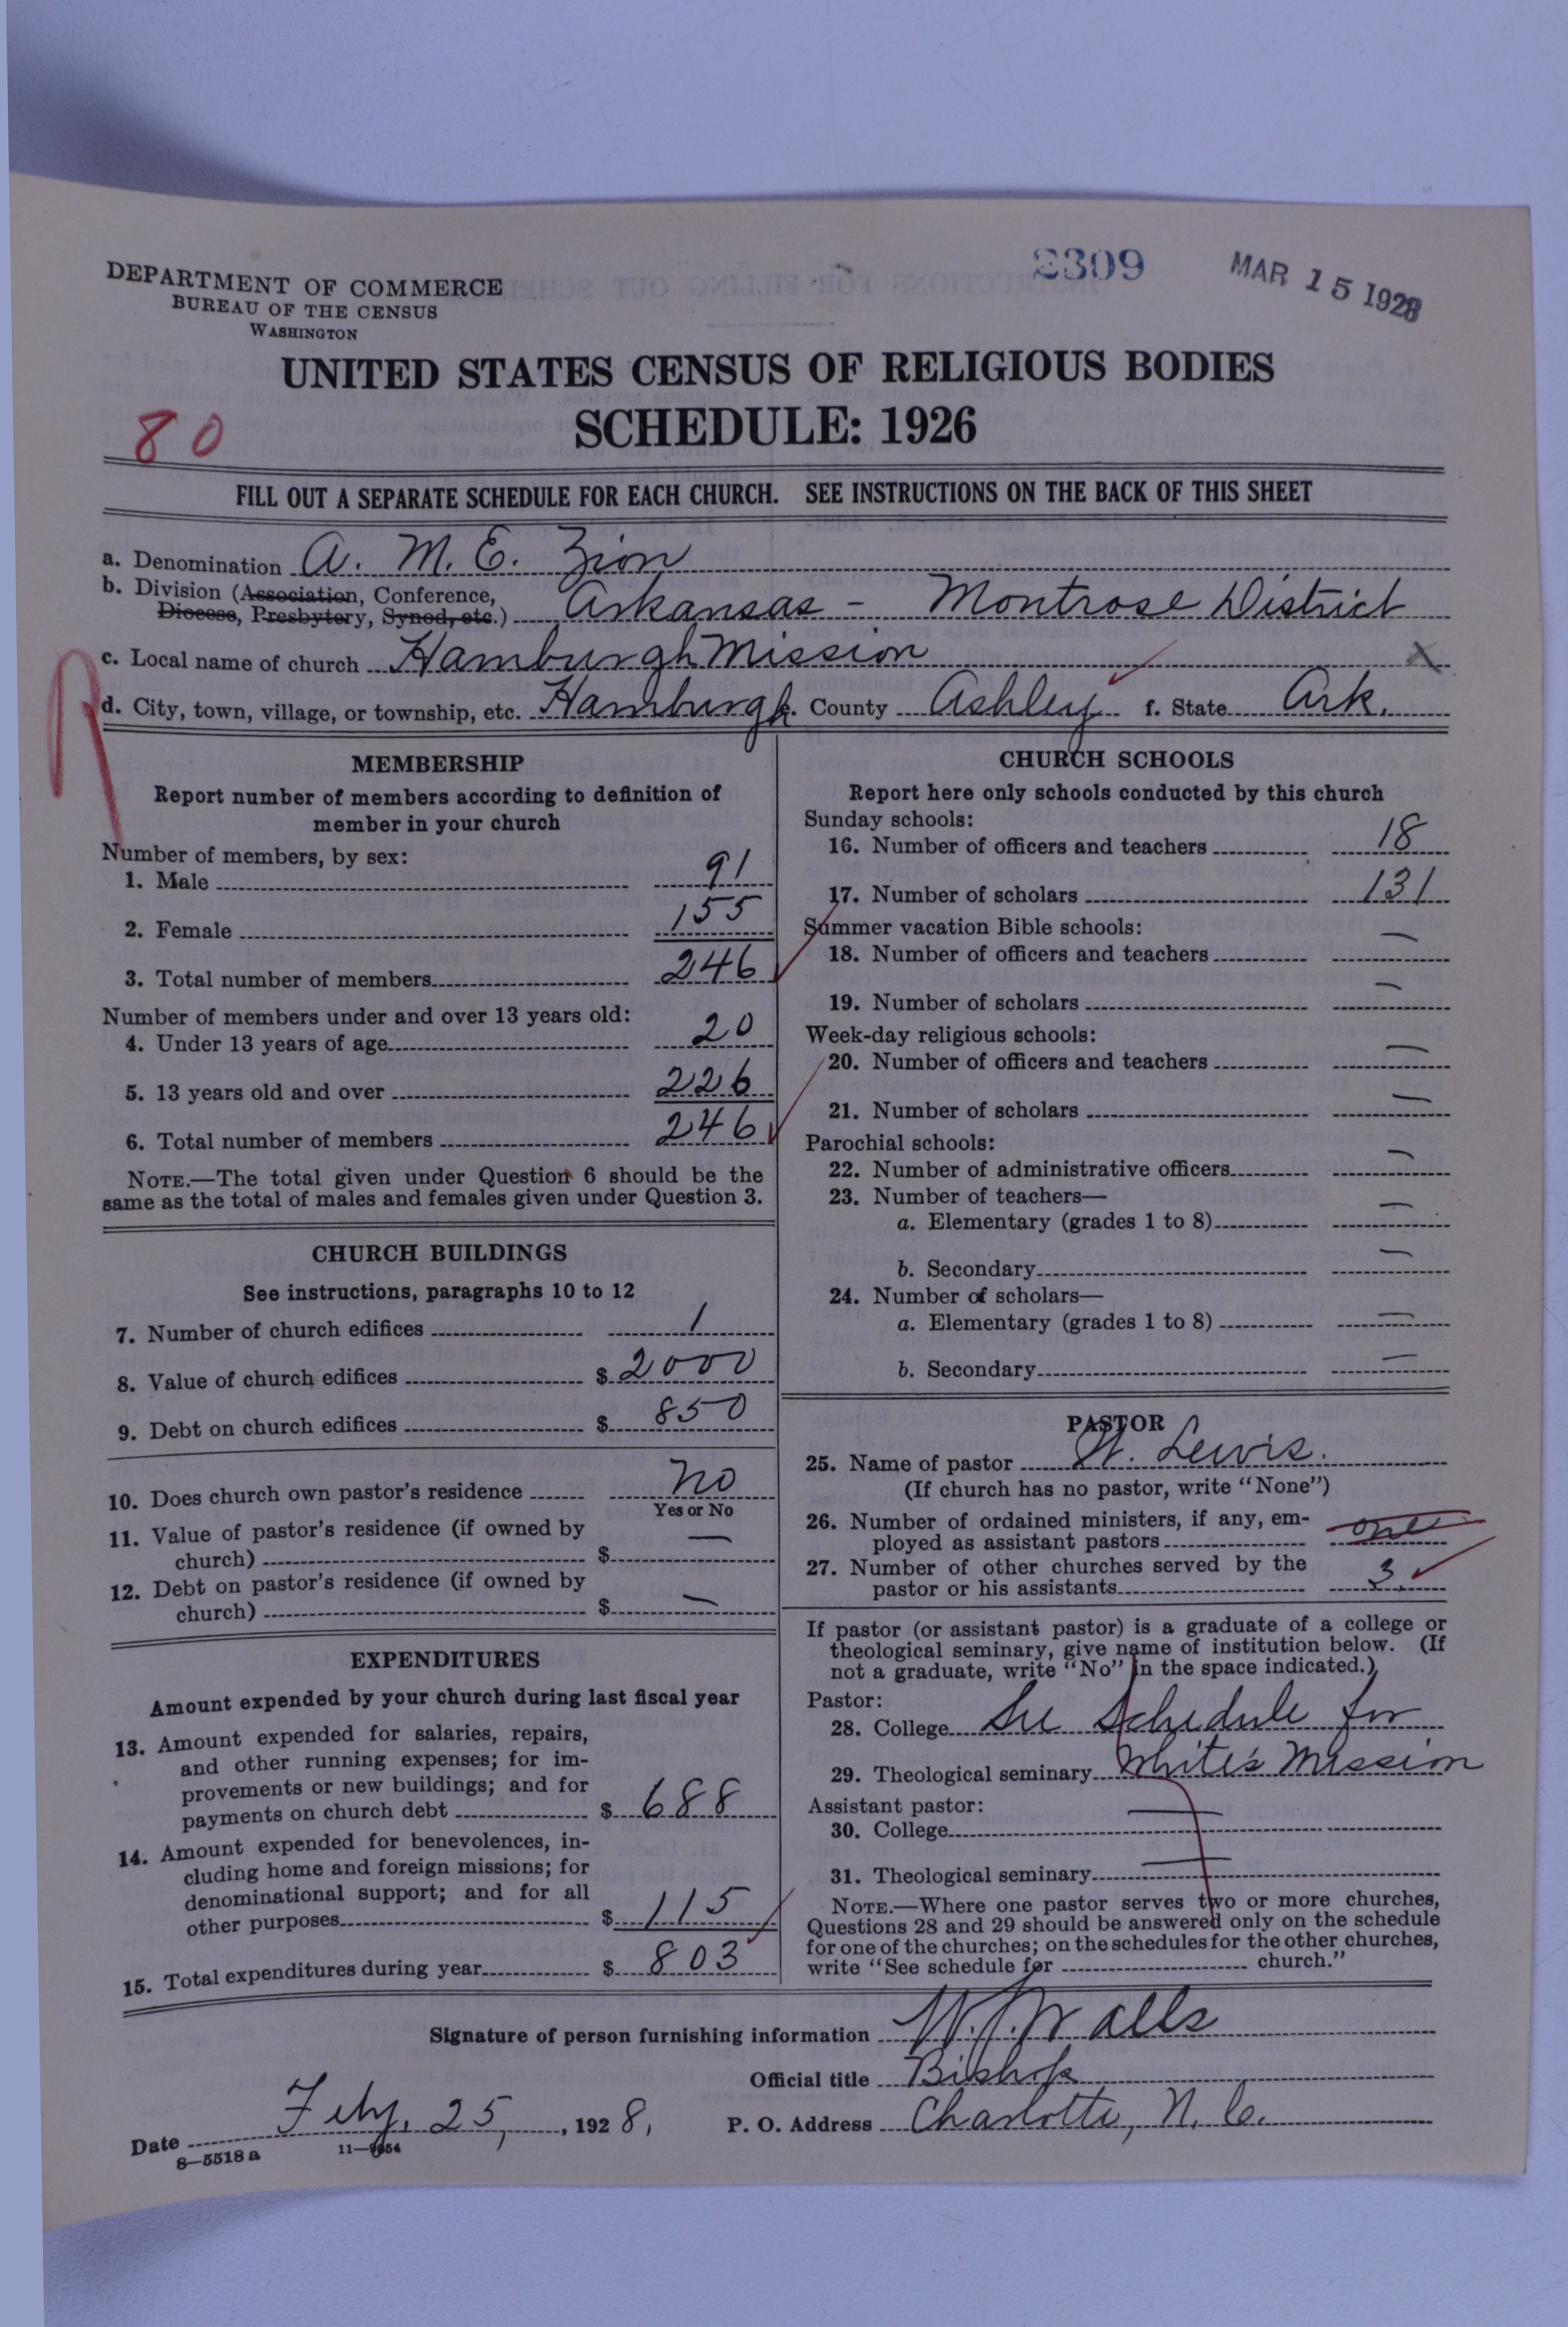 2309
MAR 15 1928
DEPARTMENT OF COMMERCE
BUREAU OF THE CENSUS
WASHINGTON
UNITED STATES CENSUS OF RELIGIOUS BODIES
SCHEDULE: 1926
80
FILL OUT A SEPARATE SCHEDULE FOR EACH CHURCH. SEE INSTRUCTIONS ON THE BACK OF THIS SHEET
a. Denomination A. M. E. Zion
b. Division (Association, Conference,
Diocese, Presbytery, Synod, etc.) Arkansas - Montrose District
c. Local name of church Hamburgh Mission X
d. City, town, village, or township, etc. Hamburgh e. County Ashley f. State Ark.
MEMBERSHIP
Report number of members according to definition of
member in your church
Number of members, by sex:
1. Male 91
2. Female 155
3. Total number of members 246
Number of members under and over 13 years old:
4. Under 13 years of age 20
5. 13 years old and over 226
6. Total number of members 246
NOTE.—The total given under Question 6 should be the
same as the total of males and females given under Question 3.
CHURCH BUILDINGS
See instructions, paragraphs 10 to 12
7. Number of church edifices 1
8. Value of church edifices $ 2000
9. Debt on church edifices $ 850
10. Does church own pastor's residence No
Yes or No
11. Value of pastor's residence (if owned by
church) $ —
12. Debt on pastor's residence (if owned by
church) $ —
EXPENDITURES
Amount expended by your church during last fiscal year
13. Amount expended for salaries, repairs,
and other running expenses; for im-
provements or new buildings; and for
payments on church debt $ 688
14. Amount expended for benevolences, in-
cluding home and foreign missions; for
denominational support; and for all
other purposes $ 115
15. Total expenditures during year $ 803
CHURCH SCHOOLS
Report here only schools conducted by this church
Sunday schools:
16. Number of officers and teachers 18
17. Number of scholars 131
Summer vacation Bible schools:
18. Number of officers and teachers —
19. Number of scholars —
Week-day religious schools:
20. Number of officers and teachers —
21. Number of scholars —
Parochial schools:
22. Number of administrative officers —
23. Number of teachers—
a. Elementary (grades 1 to 8) —
b. Secondary —
24. Number of scholars—
a. Elementary (grades 1 to 8) —
b. Secondary —
PASTOR
25. Name of pastor Lewis.
(If church has no pastor, write "None")
26. Number of ordained ministers, if any, em-
ployed as assistant pastors one
27. Number of other churches served by the
pastor or his assistants 3
If pastor (or assistant pastor) is a graduate of a college or
theological seminary, give name of institution below. (If
not a graduate, write "No" in the space indicated.)
Pastor:
28. College See Schedule for
29. Theological seminary White's Mission
Assistant pastor:
30. College —
31. Theological seminary —
NOTE.—Where one pastor serves two or more churches,
Questions 28 and 29 should be answered only on the schedule
for one of the churches; on the schedules for the other churches,
write "See schedule for church."
Signature of person furnishing information W. J. Walls
Official title Bishop
Date Feby. 25, , 1928, P. O. Address Charlotte, N. C.
8—5518 a 11—9054